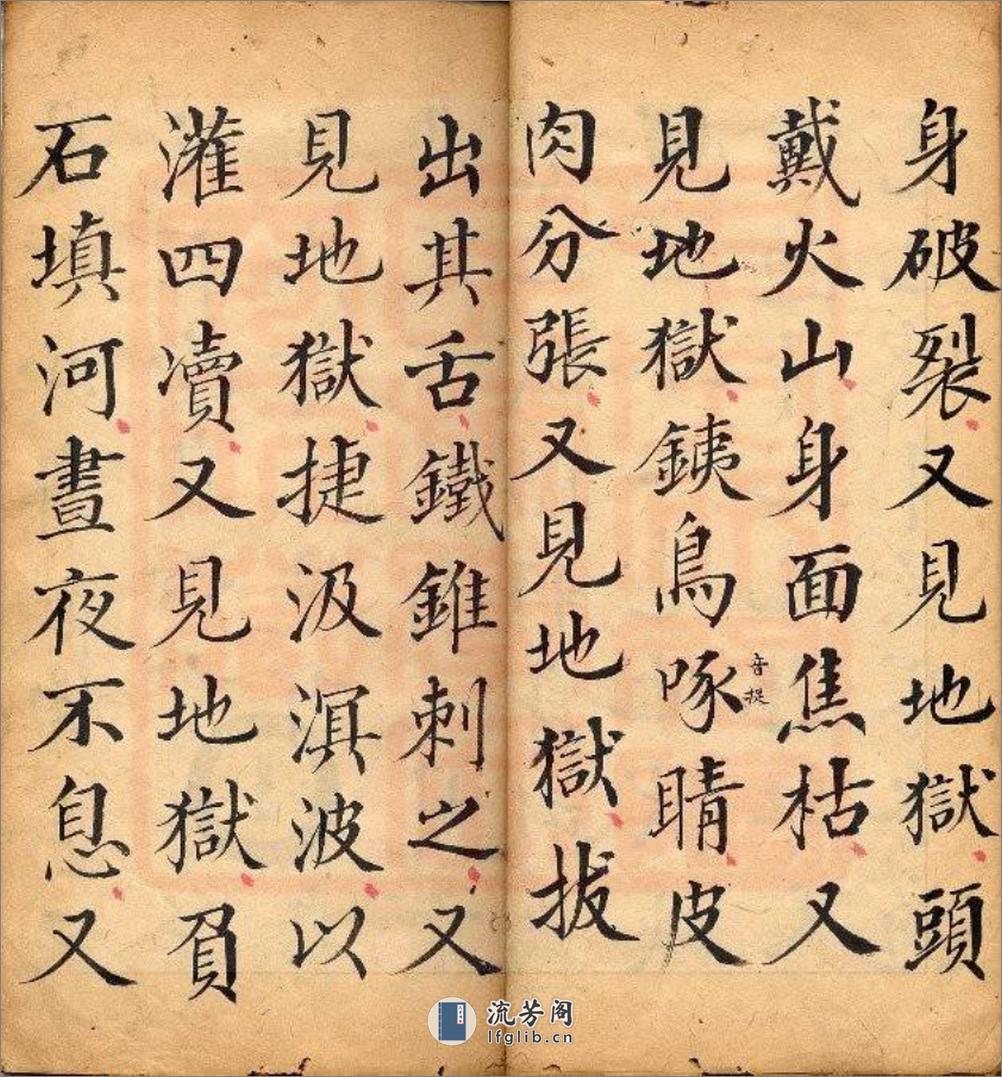 身破裂又見地獄頭
戴火山身面焦枯又
見地獄銕鳥啄晴皮
音捉
肉分張又見地獄拔
出其舌鐵錐刺之又
見地獄捷汲溟波以
灌四瀆又見地獄負
石填河晝夜不息又
流芳阁
lfglib.cn